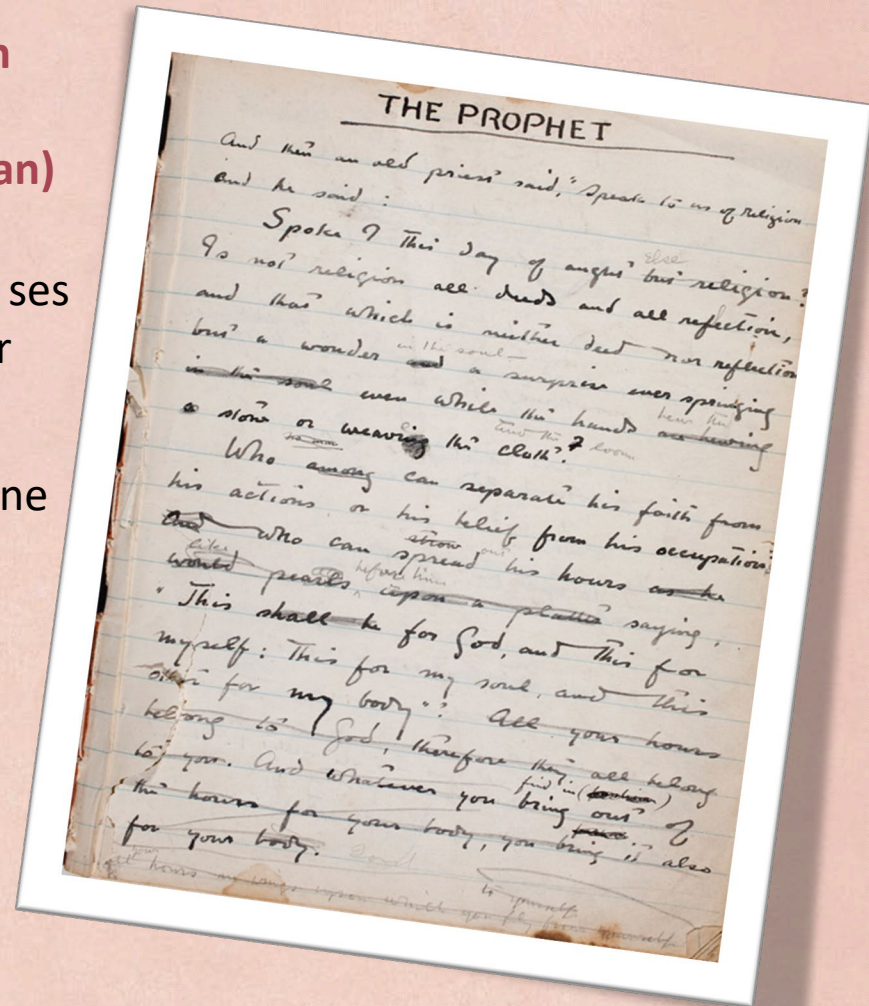 n
an)
ses
r
ne
THE PROPHET
And then an old priest said, "Speak to us of religion
and he said :
Spoke I this day of aught else but religion?
Is not religion all deeds and all reflection,
and that which is neither deed nor reflection
but a wonder and in the soul a surprise ever springing
in the soul even while the hands are hewing hew the
a stone or weaving tend the the cloth? loom
Who among can separate his faith from
his actions, or his belief from his occupation;
And who can strow out spread his hours as he
would like pearls before him upon a platter saying,
"This shall be for God, and this for
myself: This for my soul, and this
other for my body"? All your hours
belong to God, therefore they all belong
to you. And whatever you find in bring out of
the hours for your body, you bring it also
for your body.
to yourself
hours are wings upon which you fly from yourself